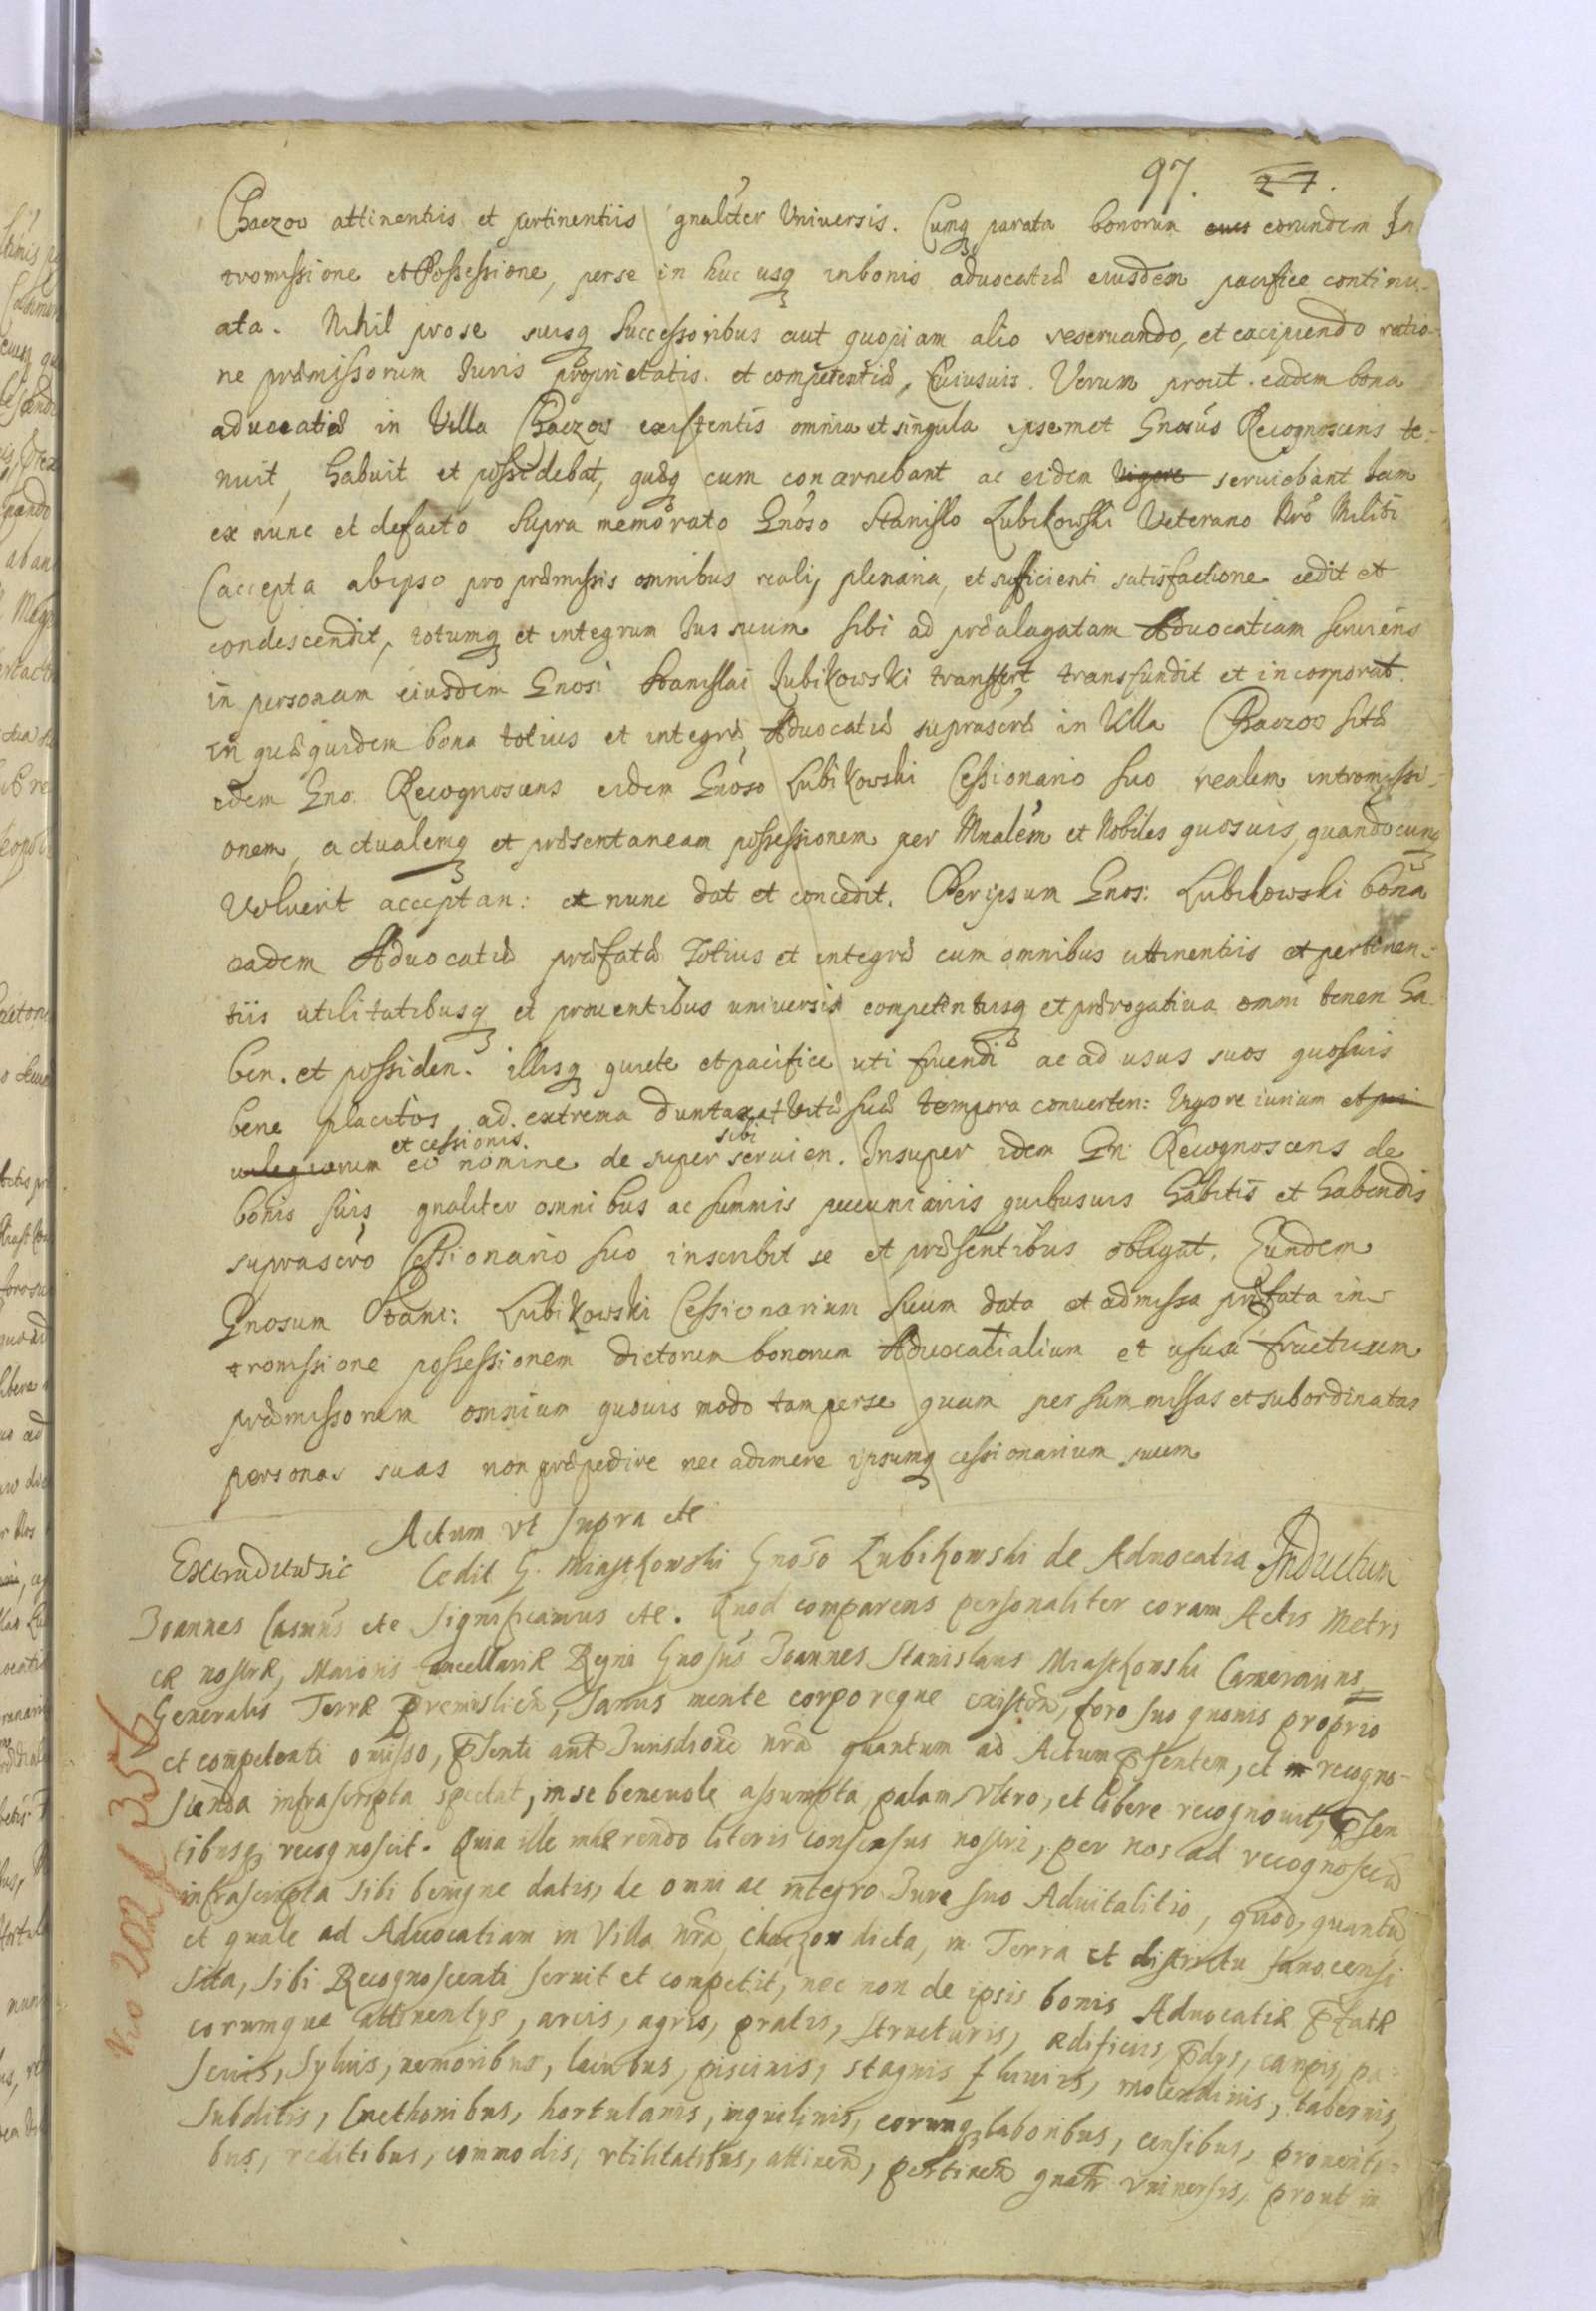 97. 27.
Chaczow attinentiis et pertinentiis gnaliter Universis. Cumq parata bonorum eius eorundem In
tromissione et Possessione, per se in huc usq in bonis advocatiæ eiusdem pacifice continu-
ata. Nihil pro se suisq Successoribus aut quopiam alio reservando, et excipiendo ratio-
ne præmissorum Iuris proprietatis et competentiæ, Cuiusvis. Verum prout eadem bona
advocatiæ in Villa Chaczow existentis omnia et singula ipsemet Gnosus Recognoscens te-
nuit, habuit et possidebat, quæq eum concernebant ac eidem vigore serviebant Iam
ex nunc et defacto Supra memorato Gnoso Stanislo Lubikowski Veterano Nro Militi
(accepta ab ipso pro præmissis omnibus reali, plenaria, et sufficienti satisfactione cedit et
condescendit, totumq et integrum Ius suum sibi ad præalagatam Advocatiam serviens
in personam eiusdem Gnosi Stanislai Lubikowski transfert, transfundit et incorporat.
In quæquidem bona totius et integræ Advocatiæ suprascræ in Villa Chaczow sitæ
idem Gno. Recognoscens eidem Gnoso Lubikowski Cessionario suo realem intromissi-
onem, actualemq et præsentaneam possessionem per Mnalem et Nobiles quosvis, quandocunq
Voluerit acceptan: ex nunc dat et concedit. Per ipsum Gnos: Lubikowski bona
eadem Advocatiæ præfatæ Totius et integræ cum omnibus attinentiis et pertinen-
tiis utilitatibusq et proventibus universis competentiisq et prærogativa omni tenen. Ha-
ben. et possiden. illisq quiete et pacifice uti fruendi ac ad usus suos quosvis
bene placitos ad extrema duntaxat Vitæ suæ tempora converten: Vigore iurium et pri
et cessionis. sibi
vilegiorum eo nomine de super servien. Insuper idem Gn: Recognoscens de
bonis suis gnaliter omnibus ac summis pecuniariis quibusvis habitis et habendis
suprascro Cessionario suo inscribit se et præsentibus obligat, Eundem
Gnosum Stani: Lubikowski Cessionarium suum data et admissa præfata in-
tromissione possessionem dictorum bonorum Advocatialium et usum fructuum
præmissorum omnium quovis modo tam per se quam per summissas et subordinatas
personas suas non præpedire nec adimere ipsumq cessionarium suum
Actum vt supra etc
Extraditu sic Cedit G. Miastkowski Gnoso Lubikowski de Advocatia Inductum
Joannes Casimus etc Significamus etc. Quod comparens personaliter coram Actis Metri
cæ nostræ, Maioris Cancellariæ Regni Gnosus Joannes Stanislaus Miastkowski Camerarius
Generalis Terræ Premisliens, sanus mente corporeque existen, foro suo quovis proprio
et competenti omisso, psenti aut Jurisdione nra quantum ad Actum psentem, et in recogno-
scenda infrascripta spectat, in se benevole assumpto, palam Vltro, et libere recognovit, psen
tibusq recognoscit. Quia ille inhærendo literis consensus nostri, per nos ad recognoscen
infrascripta sibi benigne datis, de omni ac integro Jure suo Advitalitio, quod, quantu
et quale ad Advocatiam in Villa nra, Chaczow dicta, in Terra et districtu sanocensi
sita, sibi Recognoscenti servit et competit, nec non de ipsis bonis Advocatiæ pfatæ
eorumque attinentys, areis, agris, pratis, structuris, ædificiis, pdys, campis, pa-
scuis, sylvis, nemoribus, lacubus, piscinis, stagnis fluviis, molendinis, tabernis,
subditis, Cmethonibus, hortulanis, inquilinis, eorumq laboribus, censibus, proventi-
bus, reditibus, commodis, vtilitatibus, attinen, pertinen gnatr vniversis, prout in
Nro 202 f 356